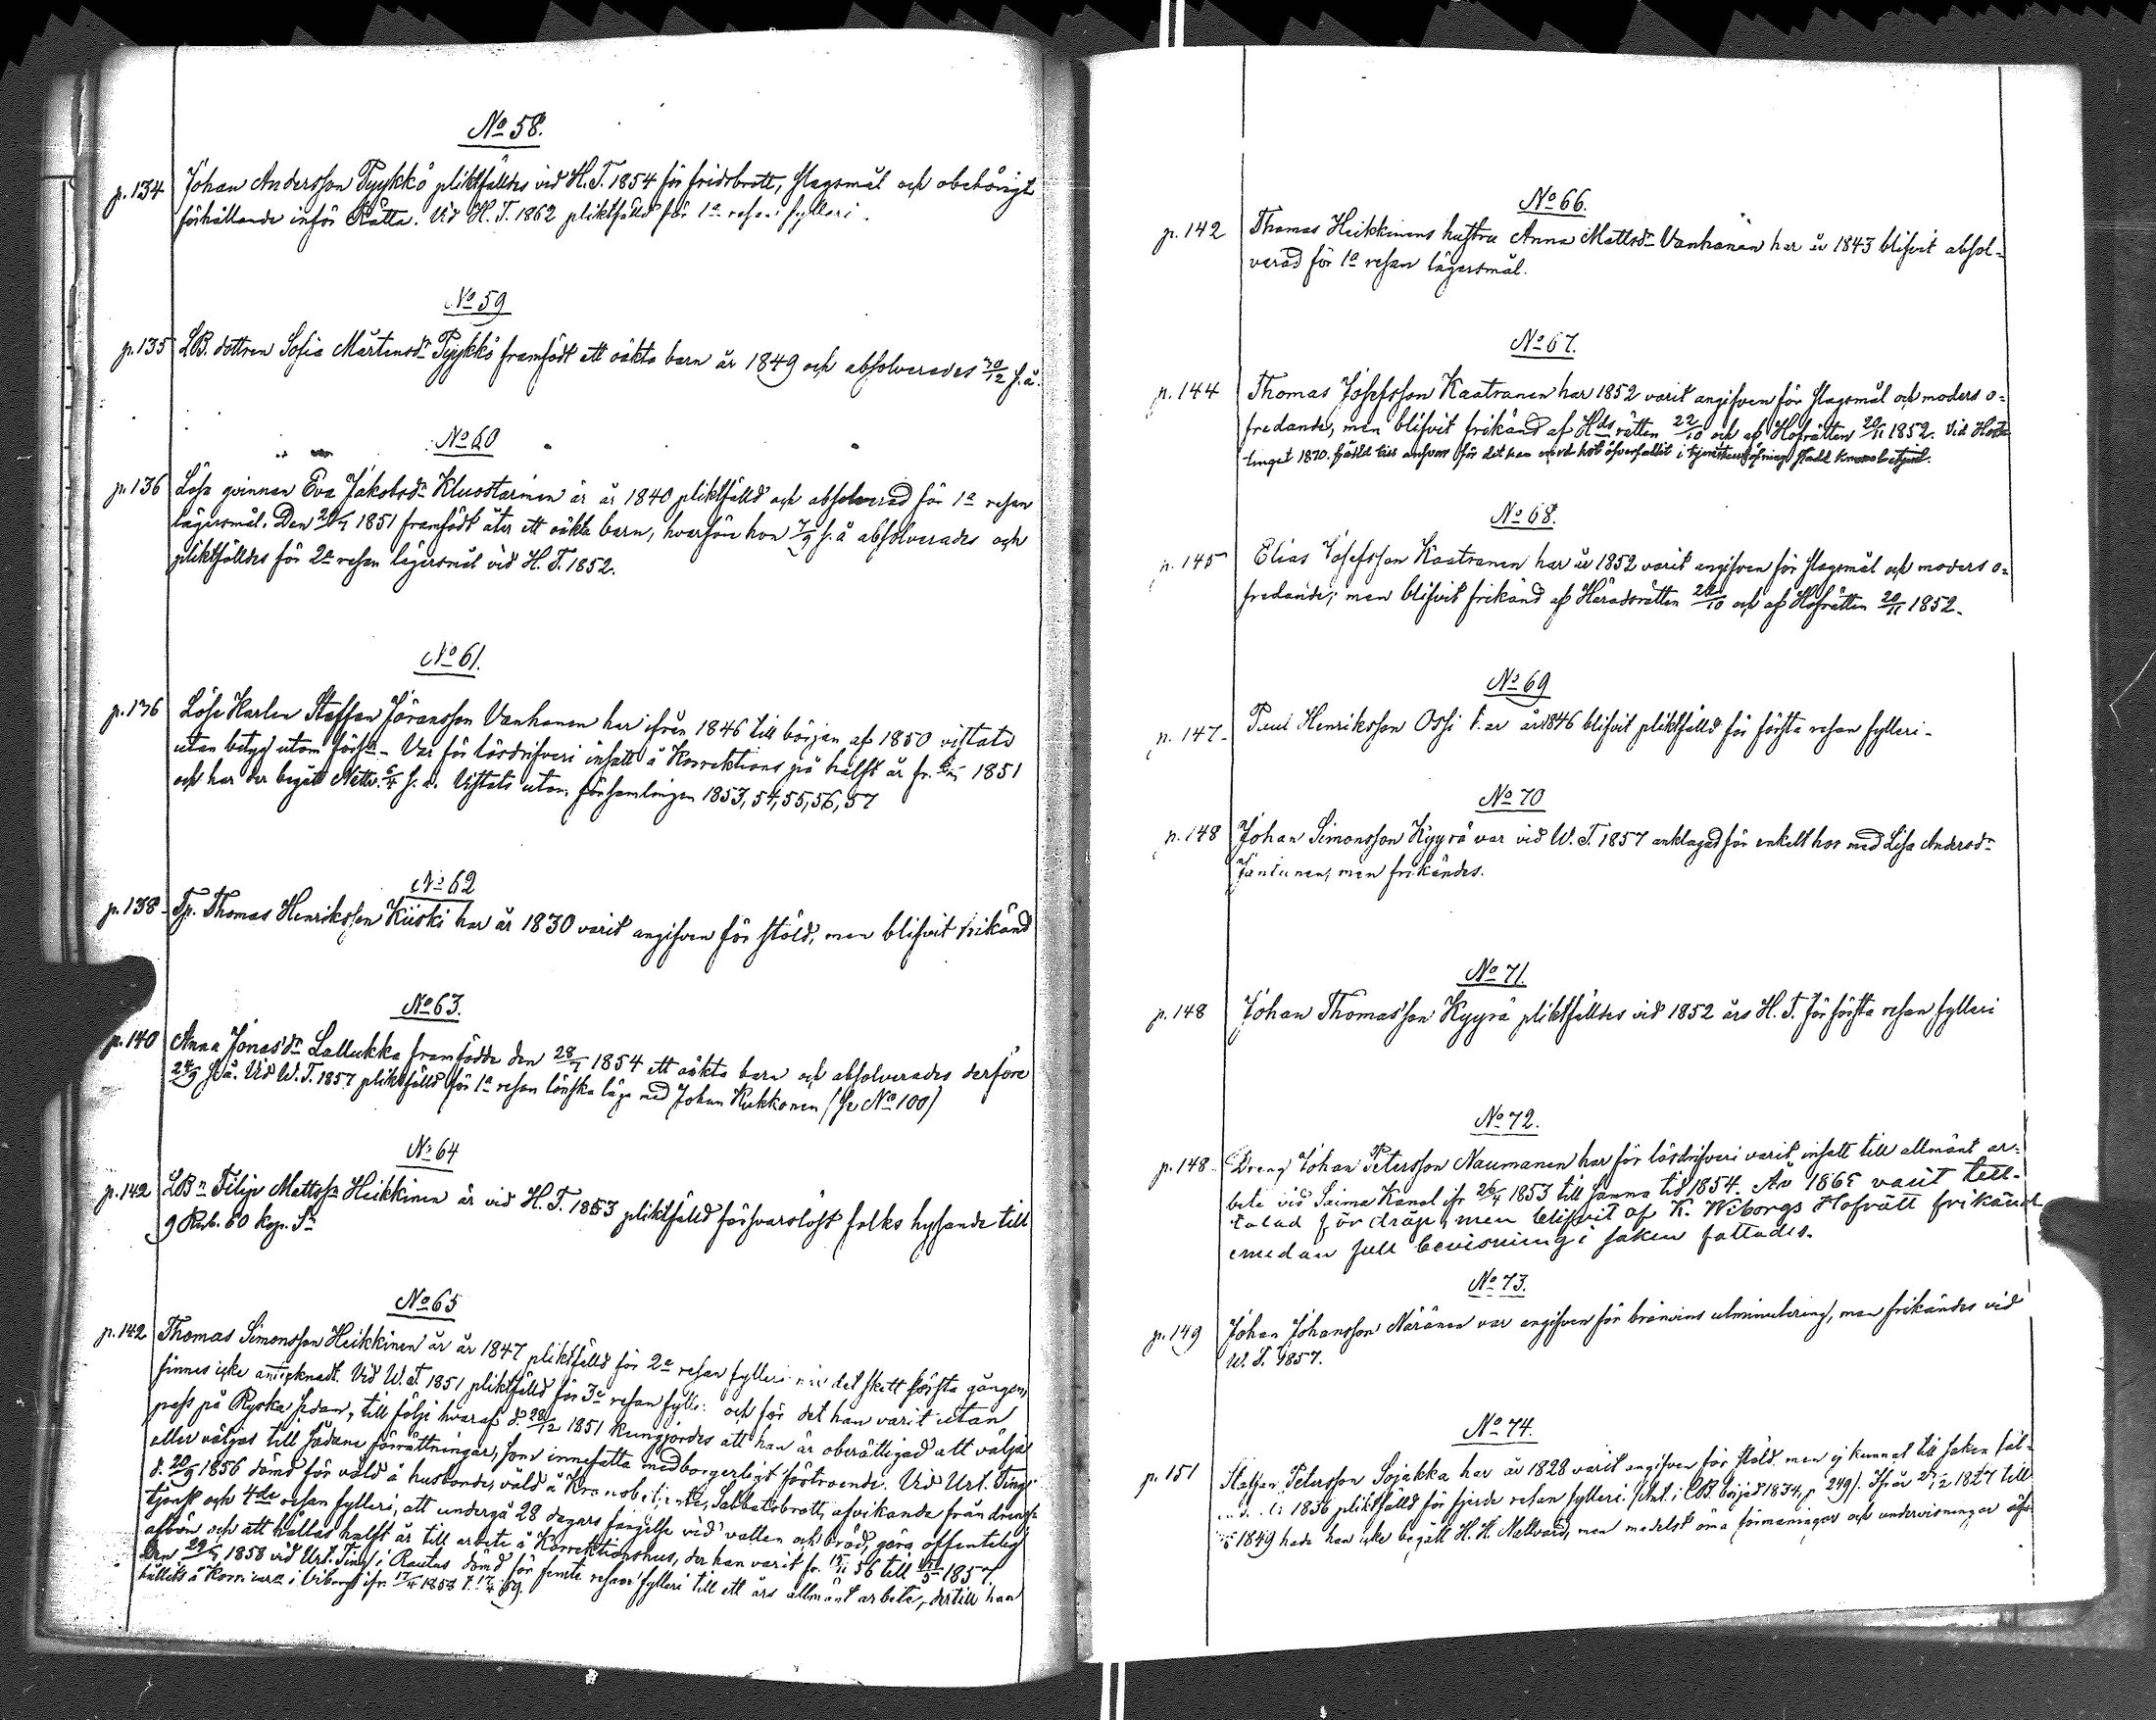 No 58.
p. 134 Johan Andersson Pyykkö pliktfälldes vid H. T. 1854 för fridsbrott, slagsmål och obehörigt
förhållande inför Rätta. Vid H. T. 1862 pliktfälld för 1a resan fylleri.
No 59
p. 135 LB. dottren Sofia Mårtensdr Pyykkö framfödt ett oäkta barn år 1849 och absolverades 30/12 s. å.
No 60
p. 136 Lösa qvinnan Eva Jakobsdr Kluostarinen är år 1840 pliktfälld och absolverad för 1a resan
lägersmål. Den 1851 framfödt åter ett oäkta barn, hvarför hon 7/9 s. å absolverades och
pliktfälldes för 2a resan lägersmål vid H. T. 1852.
No 61.
p. 136 Löse Karlen Staffan Göransson Vanhanen har ifrån 1846 till början af 1850 vistats
utan betyg utom förs. - Var för lösdrifveri insatt å Korrektions på halft år fr. 1851
och har der begått Nattv. 6/4 s. å. Vistats utom församlingen 1853, 54, 55, 56, 57
No 62
p. 138 Tp. Thomas Henriksson Kiiski har år 1830 varit angifven för stöld, men blifvit frikänd
No 63.
p. 140 Anna Jonasdr Lallukka framfödde den 28/7 1854 ett oäkta barn och absolverades derföre
24/9 s. å. Vid W. T. 1857 pliktfälld för 1a resan lönska läge med Johan Kukkonen (Se No 100)
No 64
p. 142 LBn Filip Mattss. Heikkinen är vid H. T. 1853 pliktfälld försvarslöst folks hysande till
9 Rub. 60 kop. Sr
No 65
p. 142 Thomas Simonsson Heikkinen är år 1847 pliktfälld för 2a resan fylleri när det skett första gången,
finnes icke antecknadt. Vid W. T. 1851 pliktfälld för 3e resan fylle: och för det han varit utan
pass på Ryska sidan, till följe hvaraf d. 28/12 1851 kungjordes att han är oberättigad att välja
eller väljas till sådane förrättningar, som innefatta medborgerligt förtroende. Vid Urt. Ting
d. 20/9 1856 dömd för våld å husbonde, våld å Kronobetjente, Sabbatsbrott, afvikande från dreng-
tjenst och 4de resan fylleri, att undergå 28 dagars fängelse vid vatten och bröd, göra offentelig
afbön och att hållas halft år till arbete å Korrektionshus, der han varit fr. 15/11 56 till 1857.
Den 29/7 1858 vid Urt. Ting i Rautus dömd för femte resan fylleri till ett års allmänt arbete, dertill han
hållits å Korr: i Viborg ifr. 17/4 1858 t. 17/4 59.
No 66.
p. 142 Thomas Heikkinens hustru Anna Mattsdr Vanhanen har år 1843 blifvit absol-
verad för 1a resan lägersmål.
No 67.
p. 144 Thomas Josefsson Kaatranen har 1852 varit angifven för slagsmål och moders o-
fredande, men blifvit frikänd af Hds rätten 22/10 och af Hofrätten 20/11 1852. Vid Höste
tinget 1870. fälld till ansvar för det han med hot öfverfallit i tjensteutöfning stadd kronobetjent.
No 68.
p. 145 Elias Josefsson Kaatranen har år 1852 varit angifven för slagsmål och moders o-
fredande; men blifvit frikänd af Häradsrätten 22/10 och af Hofrätten 20/11 1852.
No 69
p. 147. Paul Henriksson Ossi har år 1846 blifvit pliktfälld för första resan fylleri.
No 70
p. 148 Johan Simonsson Kyyrä var vid W. T. 1857 anklagad för enkelt hor med Lisa Andersdr
Jantunen, men frikändes.
No 71.
p. 148 Johan Thomasson Kyyrä pliktfälldes vid 1852 års H. T. för första resan fylleri
No 72.
p. 148 Dreng Johan Petersson Naumanen har för lösdrifveri varit insatt till allmänt ar-
bete vid Saima Kanal ifr. 26/4 1853 till samma tid 1854. År 1865 varit till-
talad för dråp, men blifvit af K. Wiborgs Hofrätt frikänd
emedan full bevisning i saken fattades.
No 73.
p. 149 Johan Johansson Näränen var angifven för bränvins utminutering, men frikändes vid
W. T. 1857.
No 74.
p. 151 Staffan Petersson Sojakka har år 1828 varit angifven för stöld. men ej kunnat till saken fäl-
1836 pliktfälld för fjerde resan fylleri. (Ant. i CB. börjad 1834, p 249). Ifrån 1827 till
1849 hade han icke begått H. H. Nattvard, men medelst öma förmaningar och undervisningar